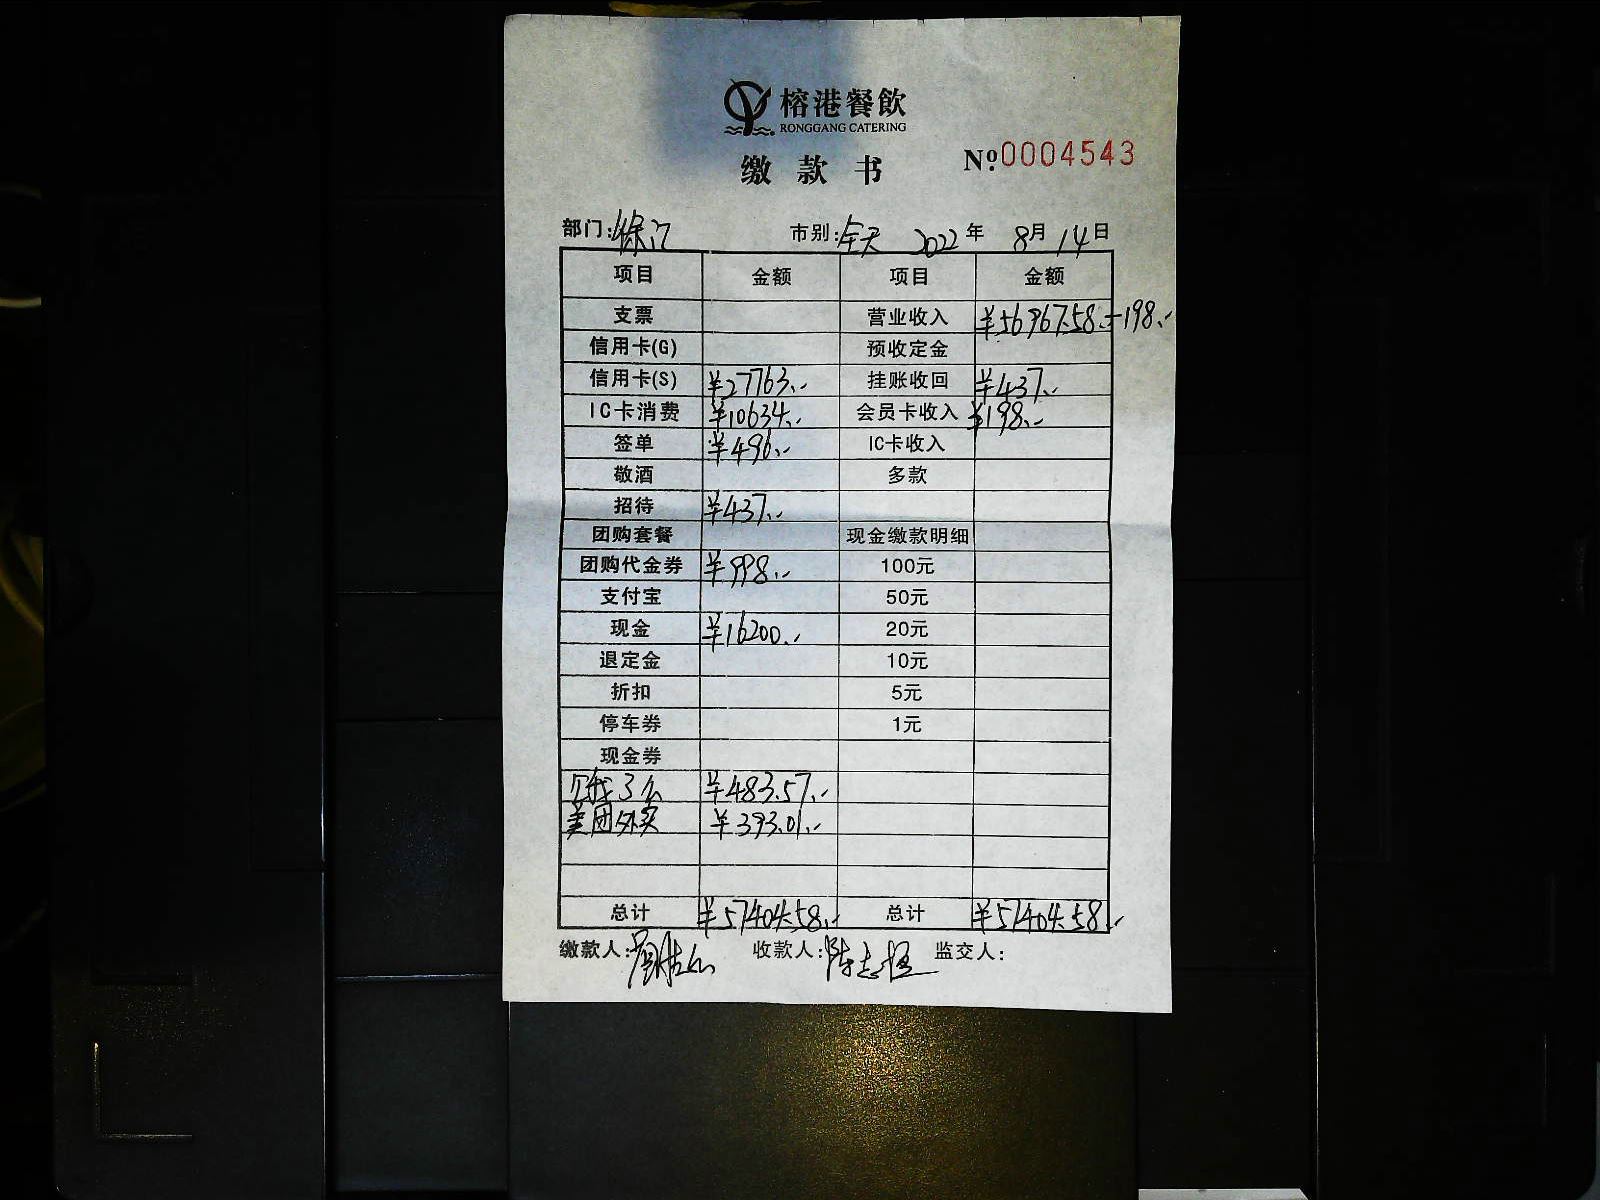 榕港餐飲
RONGGANG CATERING
缴款书
№0004543
部门: 市别:全天 2022年 8月14日
项目 金额 项目 金额
支票 营业收入 ¥56967.58.-198.-
信用卡(G) 预收定金
信用卡(S) ¥27763.- 挂账收回 ¥437.-
IC卡消费 ¥10634.- 会员卡收入 ¥198.-
签单 ¥496.- IC卡收入
敬酒 多款
招待 ¥437.-
团购套餐 现金缴款明细
团购代金券 ¥998.- 100元
支付宝 50元
现金 ¥16200.- 20元
退定金 10元
折扣 5元
停车券 1元
现金券
饿了么 ¥483.57.-
美团外卖 ¥393.01.-
总计 ¥57404.58.- 总计 ¥57404.58.-
缴款人: 收款人: 监交人: